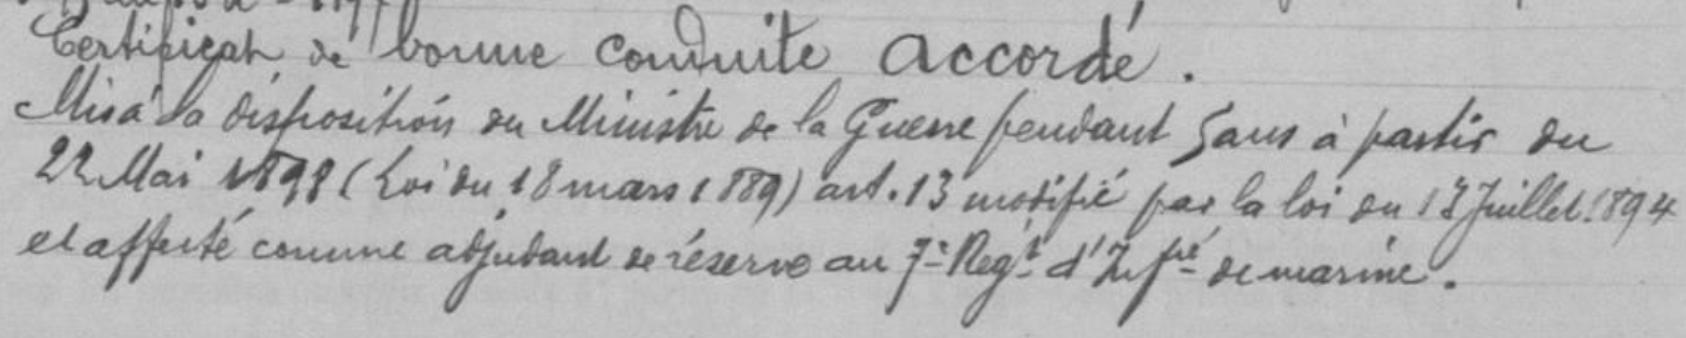 Certificat de bonne conduite accordé.
Mis à la disposition du Ministre de la Guerre pendant 5 ans à partir du
22 Mai 1898 (Loi du 18 mars 1889) art. 13 modifié par la loi du 13 Juillet 1894
et affecté comme adjudant de réserve au 7e Régt d'Infrie de marine.